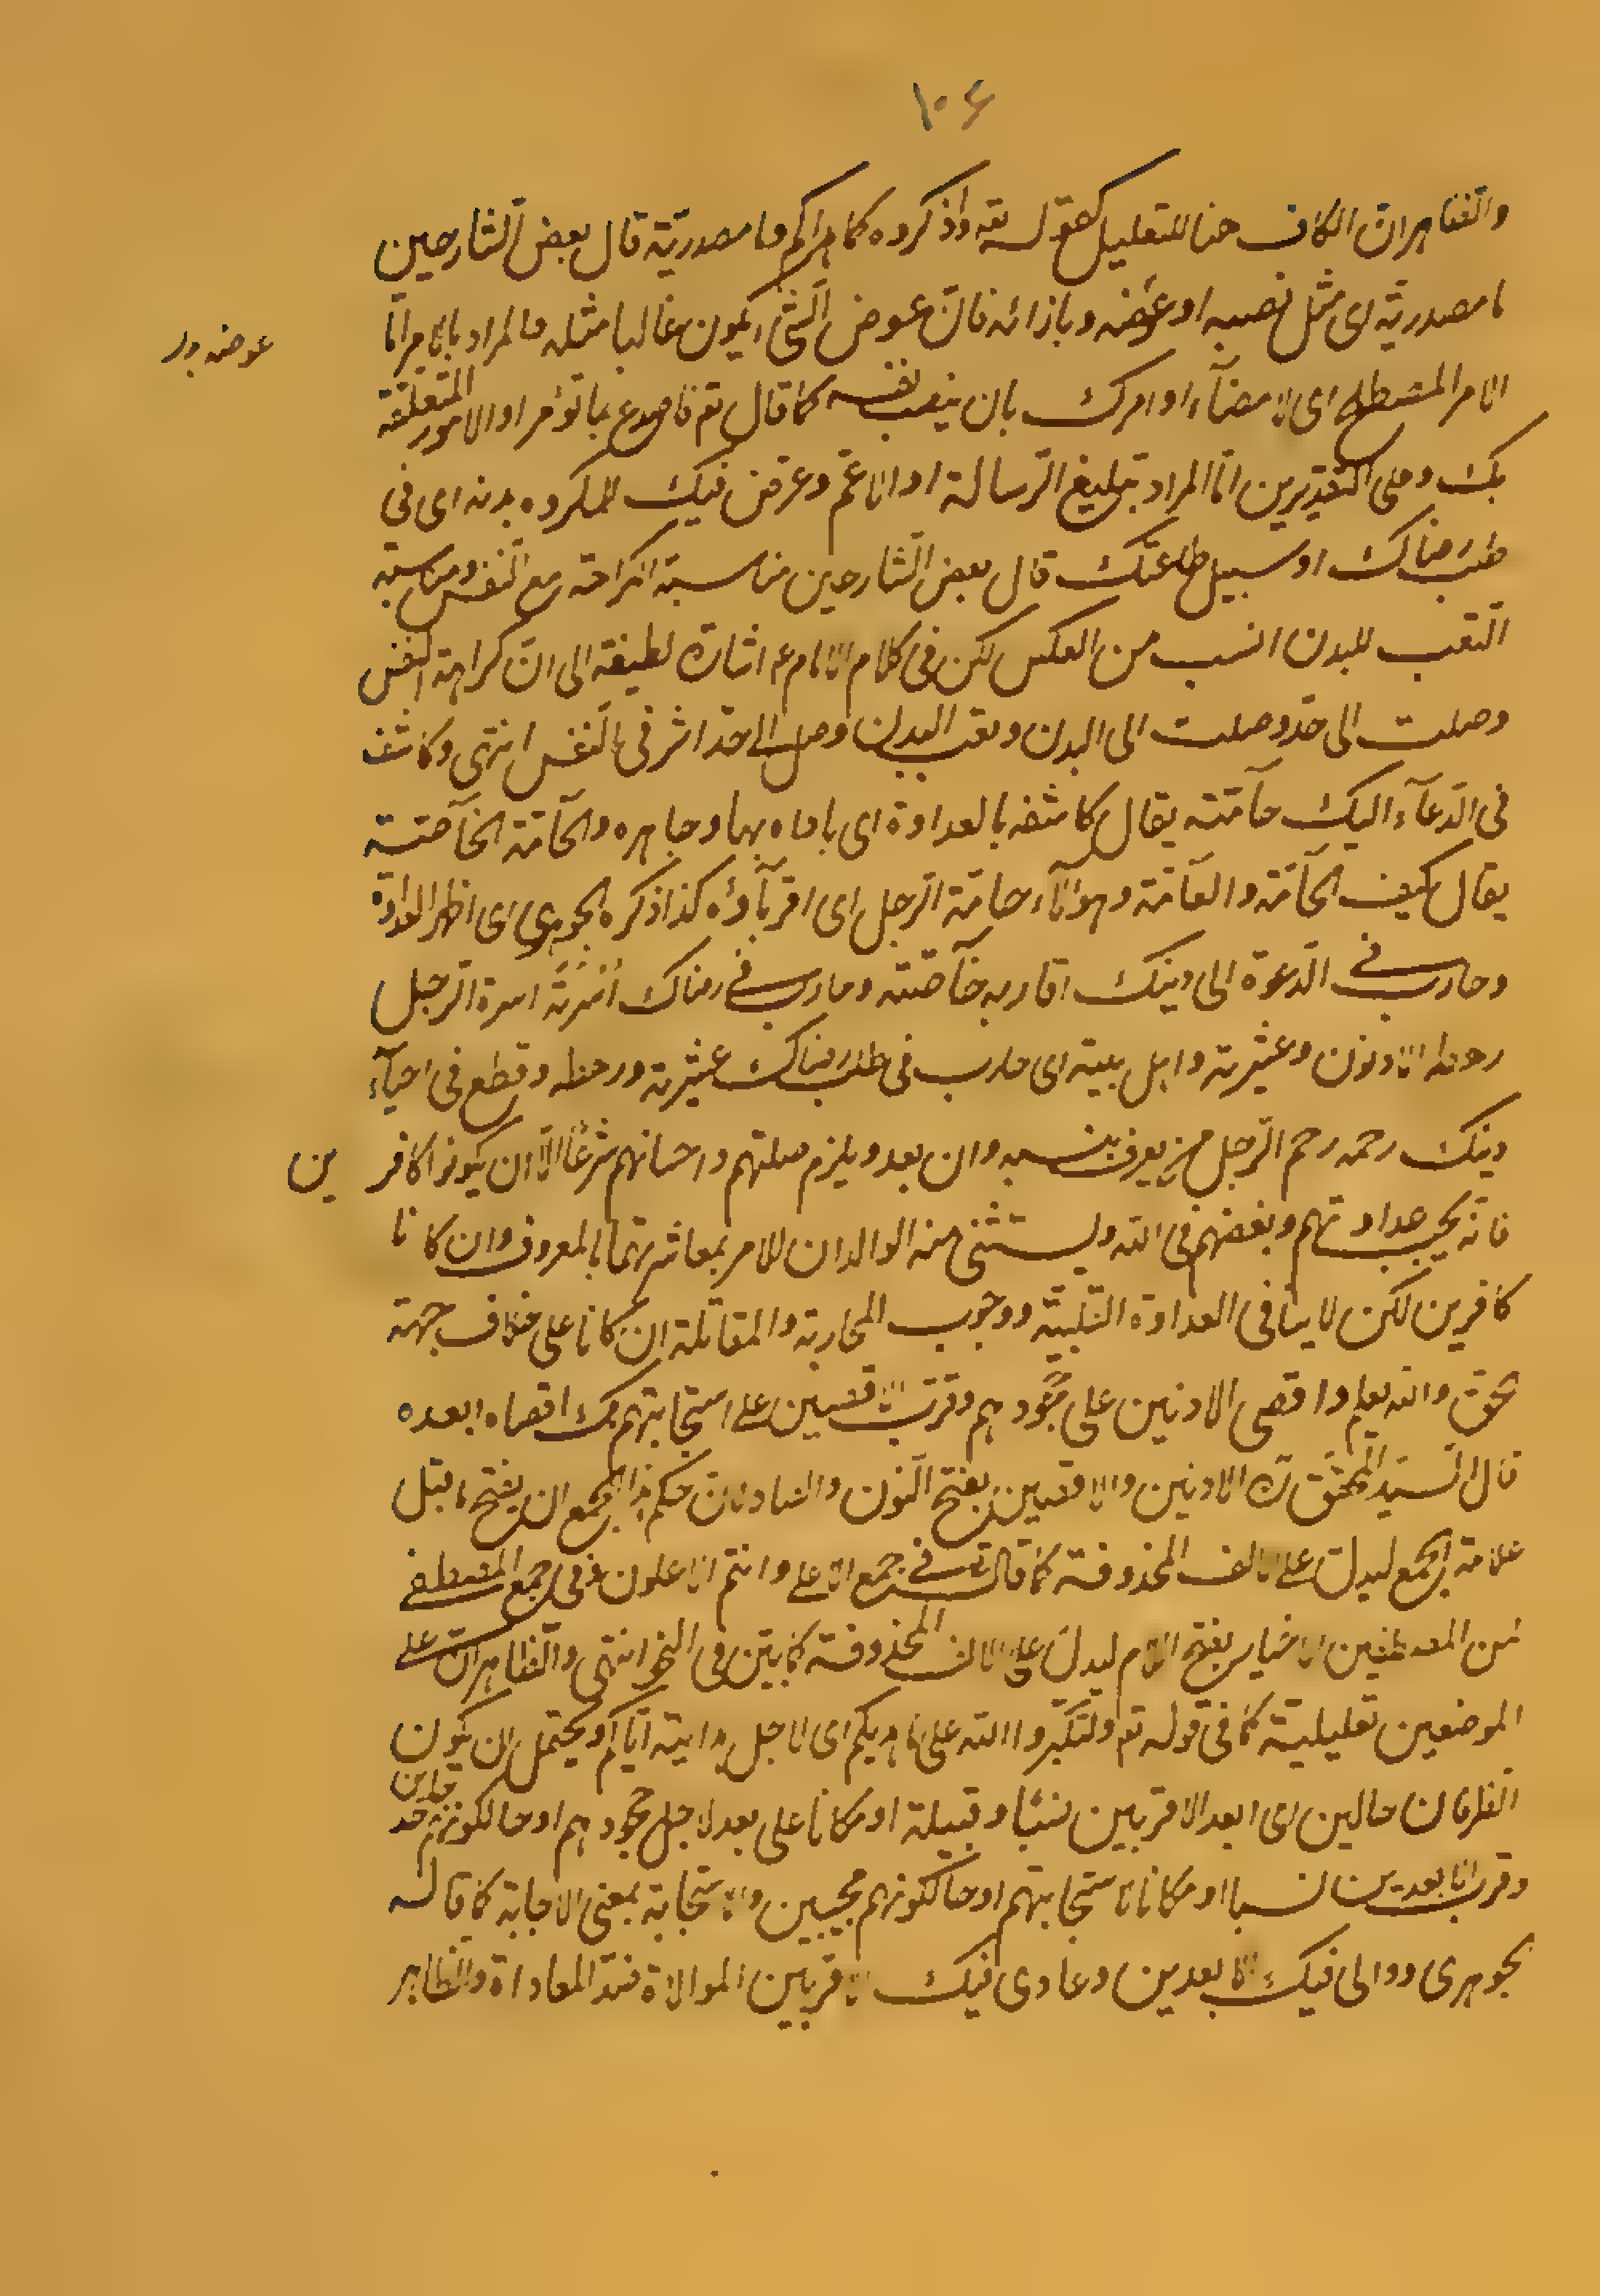 ١٠٦
والظاهر ان الكاف هنا للتعليل كقوله تعه واذكروه كما هداكم وما مصدرية قال بعض الشارحين
ما مصدرية اى مثل نصبه او عوضه وبازائه فان عوض الشئ يكون غالبا مثله والمراد بالامر امّا
عوضه بدل
الامر المصطلح اى لامضآء اوامرك بان ينصب نفسه كما قال تع فاصدع بما تؤمر او الامور المتعلقة
بك وعلى التقديرين امّا المراد تبليغ الرسالة او الاعم وعرض فيك للمكروه بدنه اى فى
طلب رضاك او سبيل طاعتك قال بعض الشارحين مناسبة الكراهة مع النفس ومناسبة
التعب للبدن انسب من العكس لكن فى كلام الامام ع اشارة لطيفة الى ان كراهة النفس
وصلت الى حدّ وصلت الى البدن وتعب البدن وصل الى حد اثر فى النفس انتهى وكاشف
فى الدعآء اليك حآمّته يقال كاشفه بالعداوة اى باداه بها وجاهره والحآمّة الخآصّة
يقال كيف الحآمّة والعآمّة وهؤلاء حامّة الرجل اى اقرباؤه كذا ذكره الجوهرى اى اظهر العداوة
وحارب فى الدعوة الى دينك اقاربه خآصّته وحارب فى رضاك اُسْرَتَهُ اسرة الرجل
رهطه الادنون وعشيرته واهل بيته اى حارب فى طلب رضاك عشيرته ورهطه وقطع فى احيآء
دينك رحمه رحم الرجل من يعرف بنسبه وان بعد ويلزم صلتهم واحسانهم شرعًا الّا ان يكونوا كافرين
فانّه يجب عداوتهم وبغضهم فى الله ويستثنى منه الوالدان للامر بمعاشرتهما بالمعروف وان كانا
كافرين لكن لا ينافى العداوة القلبية ووجوب المحاربة والمقاتلة ان كانا على خلاف جهة
الحق والله يعلم واقصى الادنين على جحودهم وقرب الاقصين على استجابتهم لك اقصاه ابعده
قال السيد المحقق ره الادنين والاقصين بفتح النون والصاد فان حكم هذا الجمع ان يفتح ما قبل
علامة الجمع ليدل على الالف المحذوفة كما قال تعه فى جمع الاعلى وانتم الاعلون وفى جمع المصطفى
لمن المصطفين الاخيار بفتح اللام ليدل على الالف المحذوفة كما بين فى النحو انتهى والظاهر ان على
الموضعين تعليلية كما فى قوله تع ولتكبّروا الله على ما هديكم اى لاجل هدايته اياكم ويحتمل ان يكون
الظرفان حالين اى ابعد الاقربين نسبًا وقبيلة او مكانا على بعد لاجل جحودهم او حالكونهم جاحدين
وقرب الابعدين نسبا او مكانا لاستجابتهم او حالكونهم مجيبين والاستجابة بمعنى الاجابة كما قاله
الجوهرى ووالى فيك الابعدين وعادى فيك الاقربين الموالاة ضد المعاداة والظاهر